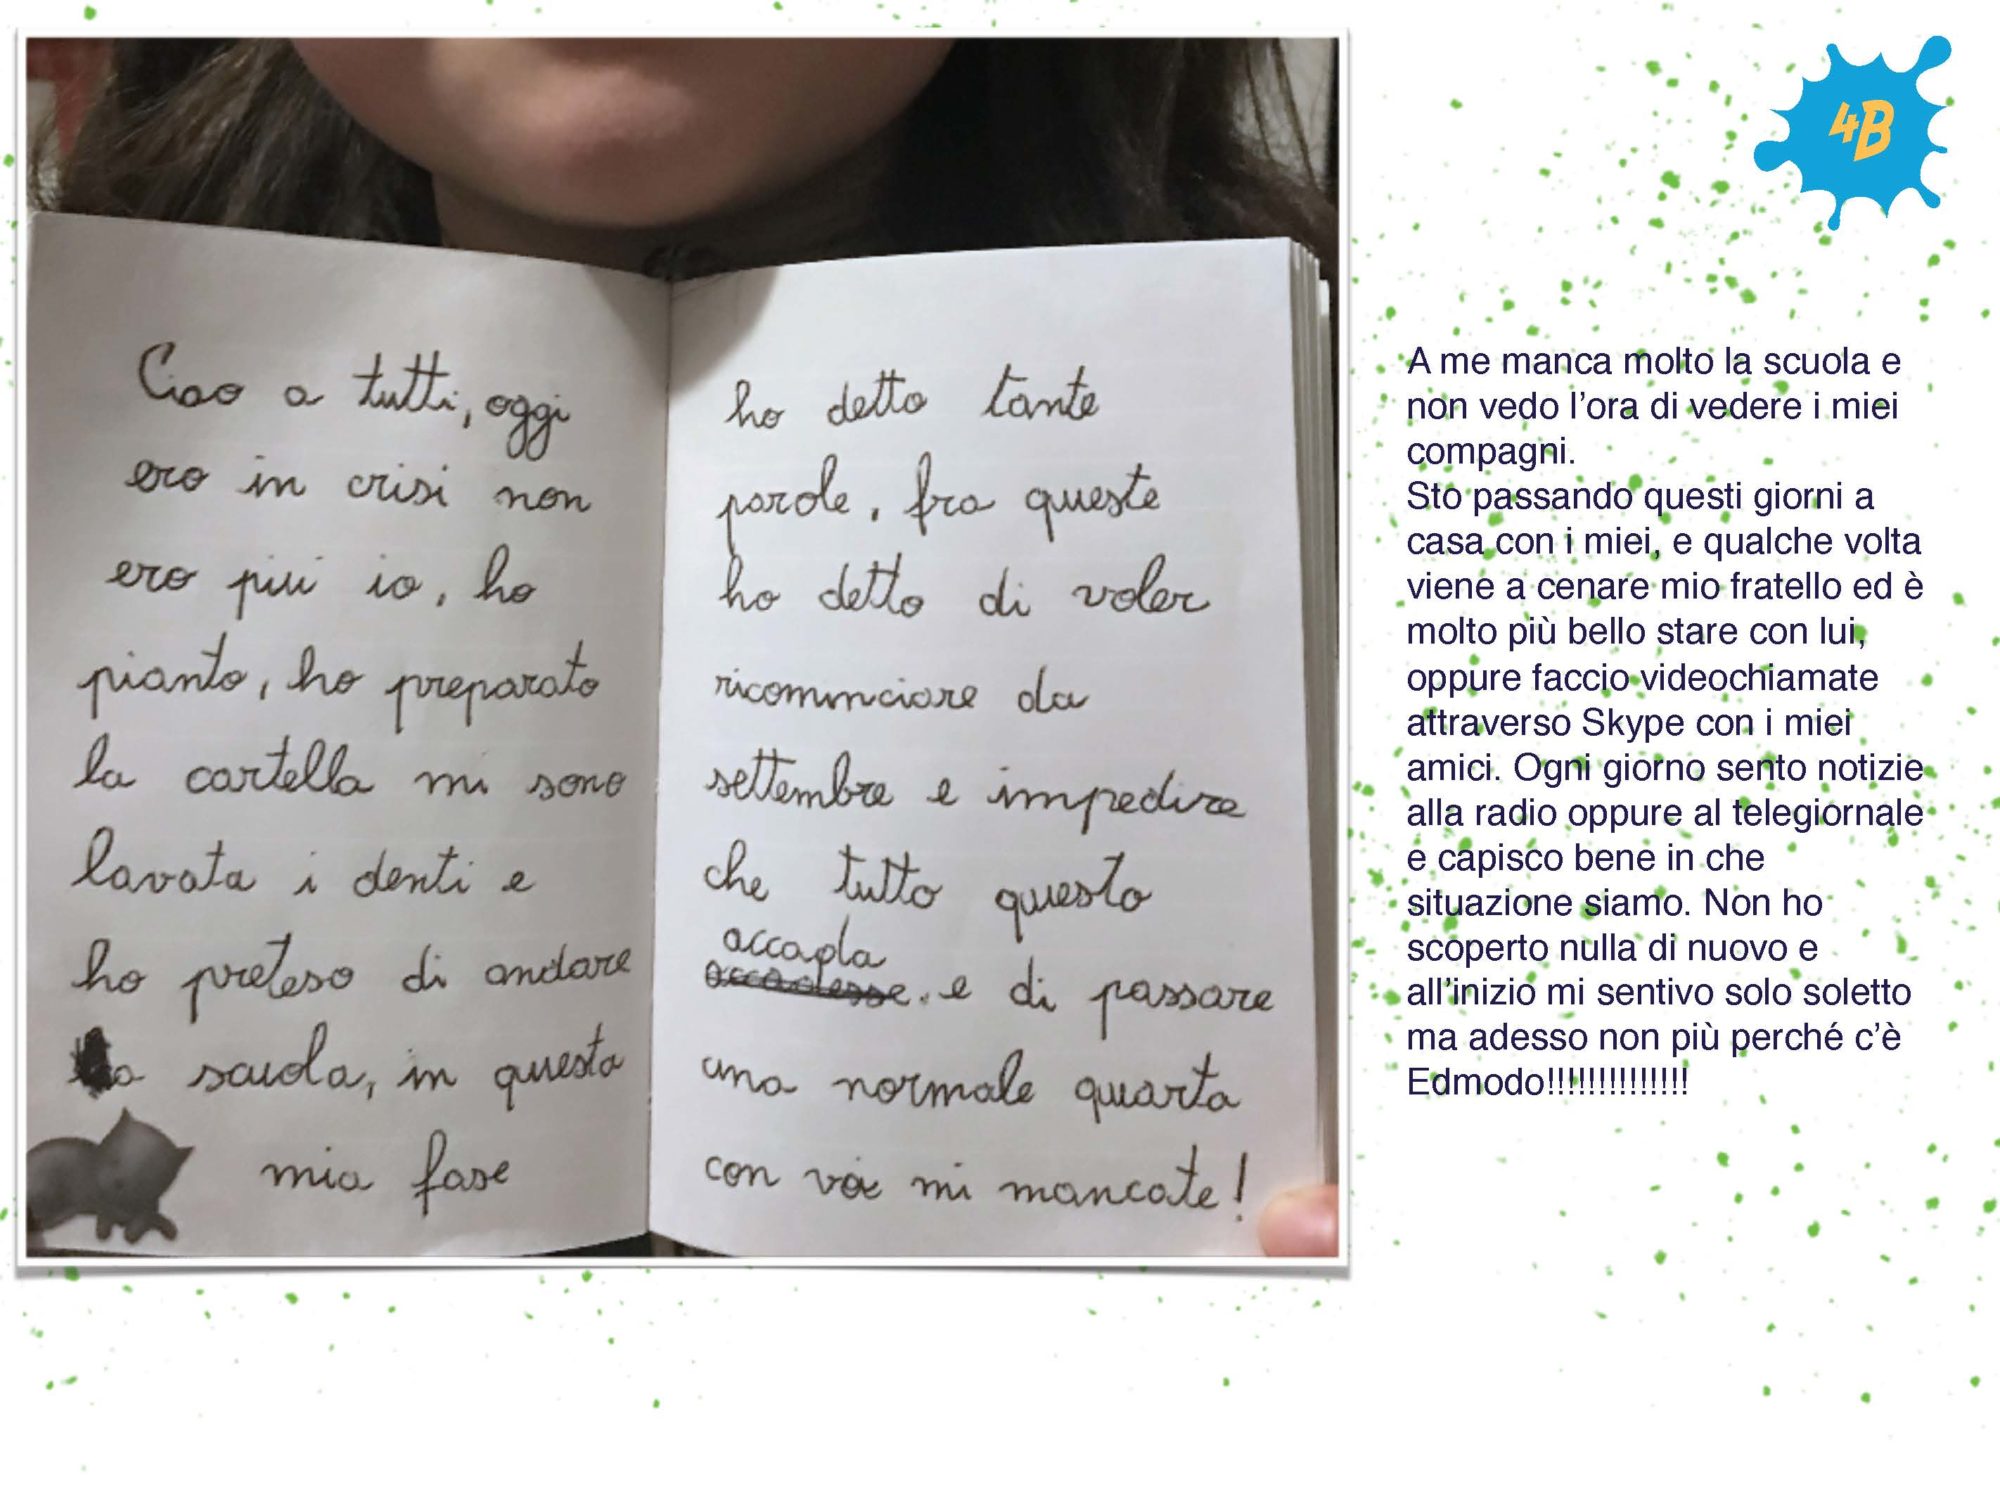 Ciao a tutti, oggi
ero in crisi non
ero più io, ho
pianto, ho preparato
la cartella mi sono
lavata i denti e
ho preteso di andare
a scuola, in questa
mia fase
ho detto tante
parole, fra queste
ho detto di voler
ricominciare da
settembre e impedire
che tutto questo
accada
accadesse. e di passare
una normale quarta
con voi mi mancate!
4B
A me manca molto la scuola e
non vedo l'ora di vedere i miei
compagni.
Sto passando questi giorni a
casa con i miei, e qualche volta
viene a cenare mio fratello ed è
molto più bello stare con lui,
oppure faccio videochiamate
attraverso Skype con i miei
amici. Ogni giorno sento notizie
alla radio oppure al telegiornale
e capisco bene in che
situazione siamo. Non ho
scoperto nulla di nuovo e
all'inizio mi sentivo solo soletto
ma adesso non più perché c'è
Edmodo!!!!!!!!!!!!!!